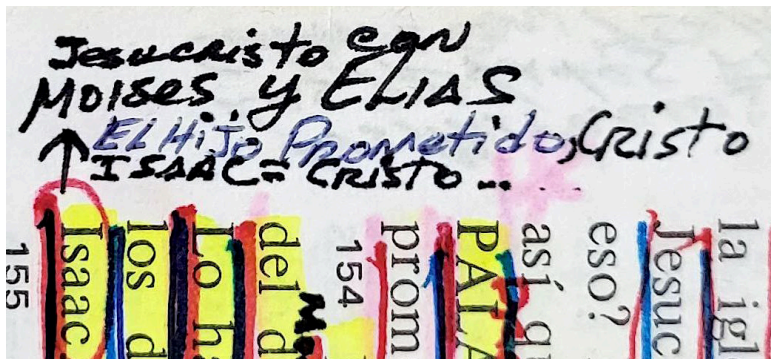 Jesucristo con
Moises y ELIAS
EL Hijo Prometido, Cristo
ISAAC = CRISTO ...
la igl
Jesuc
eso?
así qu
PALA
prom
154
del d
Lo ha
los d
Isaac
155